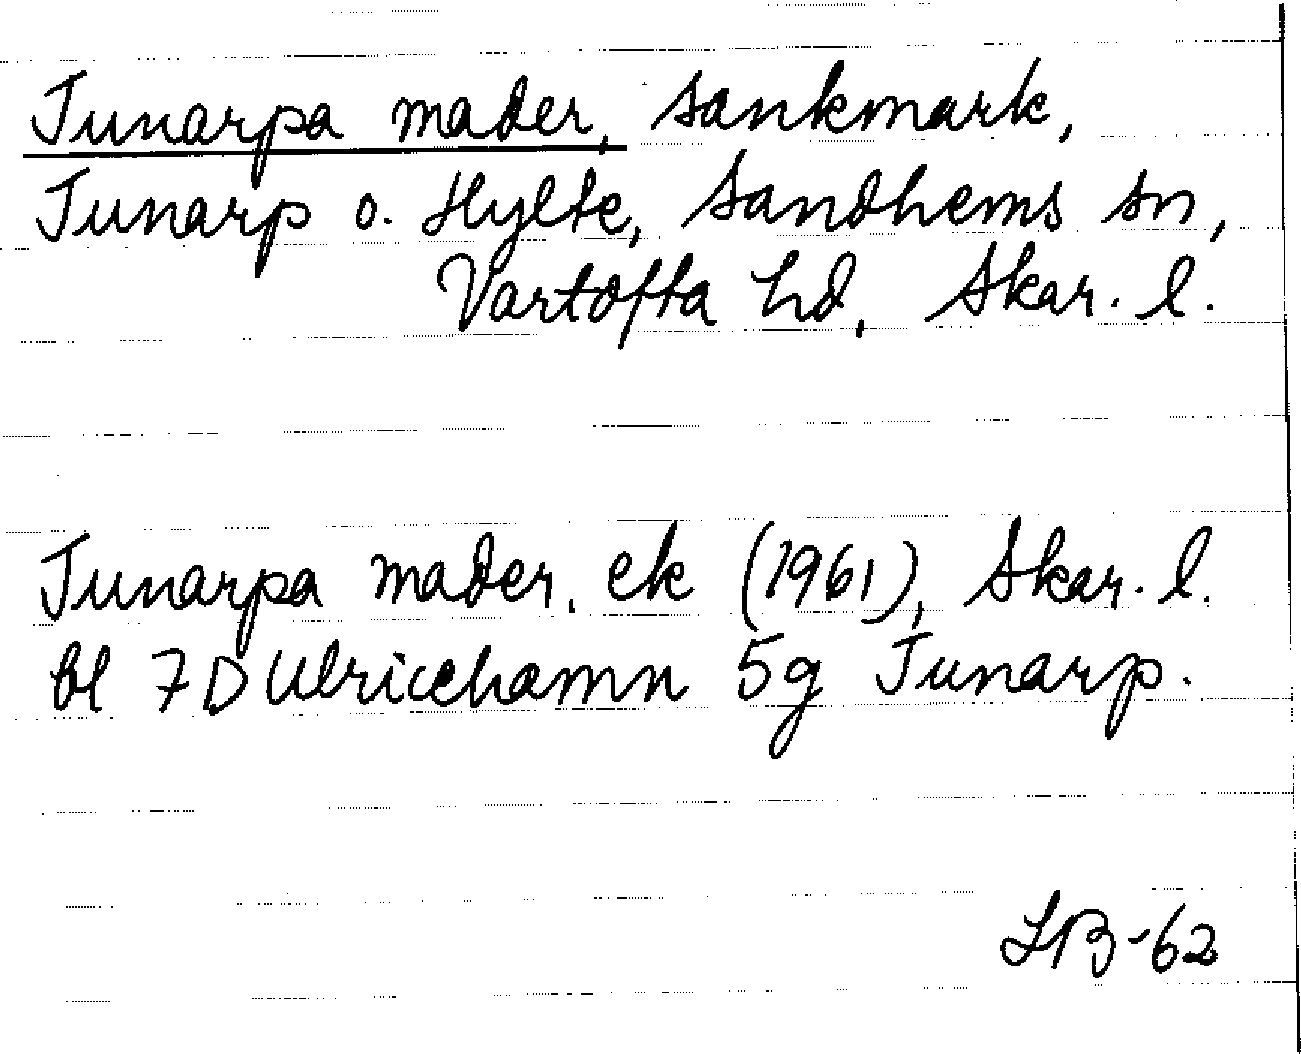 Junarpa mader, sankmark,
Junarp o. Hylte, Sandhems sn,
Vartofta hd, Skar. l.
Junarpa mader, ek (1961), Skar. l.
bl 7D Ulricehamn 5g Junarp.
LB-62